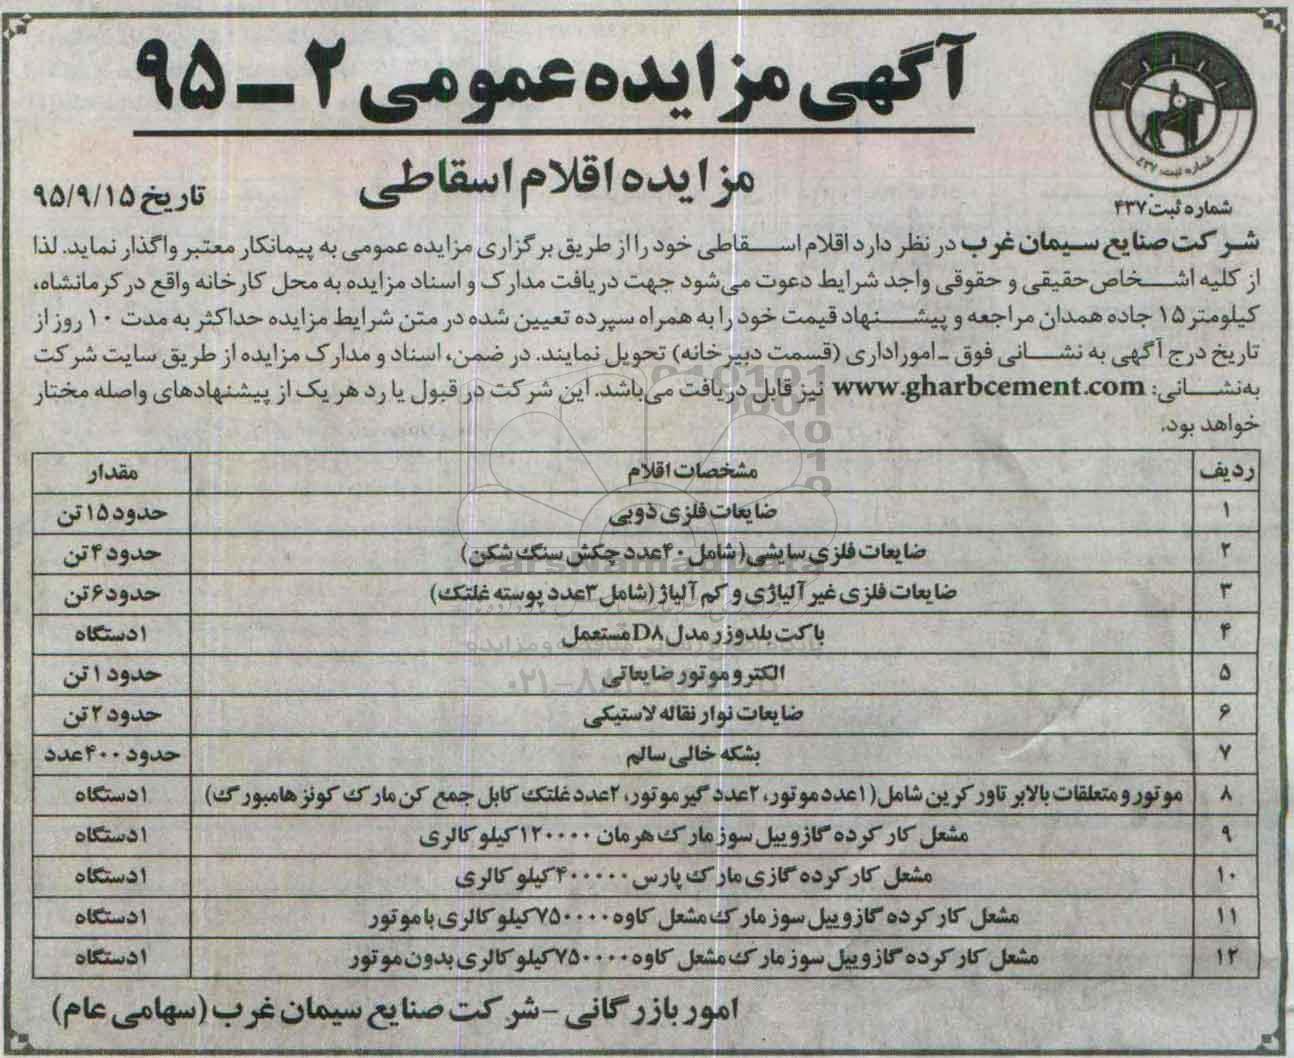 آگهی مزایده عمومی ۲ ـ ۹۵
مزایده اقلام اسقاطی
تاریخ ۹۵/۹/۱۵
شماره ثبت: ۴۳۷
شماره ثبت ۴۳۷
شرکت صنایع سیمان غرب در نظر دارد اقلام اسقاطی خود را از طریق برگزاری مزایده عمومی به پیمانکار معتبر واگذار نماید. لذا
از کلیه اشخاص حقیقی و حقوقی واجد شرایط دعوت می‌شود جهت دریافت مدارک و اسناد مزایده به محل کارخانه واقع در کرمانشاه،
کیلومتر ۱۵ جاده همدان مراجعه و پیشنهاد قیمت خود را به همراه سپرده تعیین شده در متن شرایط مزایده حداکثر به مدت ۱۰ روز از
تاریخ درج آگهی به نشانی فوق ـ امور اداری (قسمت دبیرخانه) تحویل نمایند. در ضمن، اسناد و مدارک مزایده از طریق سایت شرکت
به‌نشانی: www.gharbcement.com نیز قابل دریافت می‌باشد. این شرکت در قبول یا رد هر یک از پیشنهادهای واصله مختار
خواهد بود.
ردیف مشخصات اقلام مقدار
۱ ضایعات فلزی ذوبی حدود ۱۵ تن
۲ ضایعات فلزی سایشی (شامل ۴۰ عدد چکش سنگ شکن) حدود ۴ تن
۳ ضایعات فلزی غیر آلیاژی و کم آلیاژ (شامل ۳ عدد پوسته غلتک) حدود ۶ تن
۴ باکت بلدوزر مدل D۸ مستعمل ۱ دستگاه
۵ الکتروموتور ضایعاتی حدود ۱ تن
۶ ضایعات نوار نقاله لاستیکی حدود ۲ تن
۷ بشکه خالی سالم حدود ۴۰۰ عدد
۸ موتور و متعلقات بالابر تاور کرین شامل (۱ عدد موتور، ۲ عدد گیر موتور، ۲ عدد غلتک کابل جمع کن مارک کونز هامبورگ) ۱ دستگاه
۹ مشعل کار کرده گازوییل سوز مارک هرمان ۱۲۰۰۰۰ کیلو کالری ۱ دستگاه
۱۰ مشعل کار کرده گازی مارک پارس ۴۰۰۰۰۰ کیلو کالری ۱ دستگاه
۱۱ مشعل کار کرده گازوییل سوز مارک مشعل کاوه ۷۵۰۰۰۰ کیلو کالری با موتور ۱ دستگاه
۱۲ مشعل کار کرده گازوییل سوز مارک مشعل کاوه ۷۵۰۰۰۰ کیلو کالری بدون موتور ۱ دستگاه
امور بازرگانی - شرکت صنایع سیمان غرب (سهامی عام)